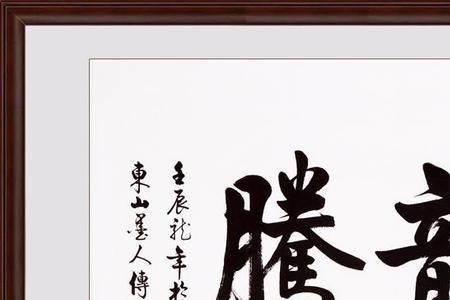 龍騰
壬辰龍年於
東山墨人傳